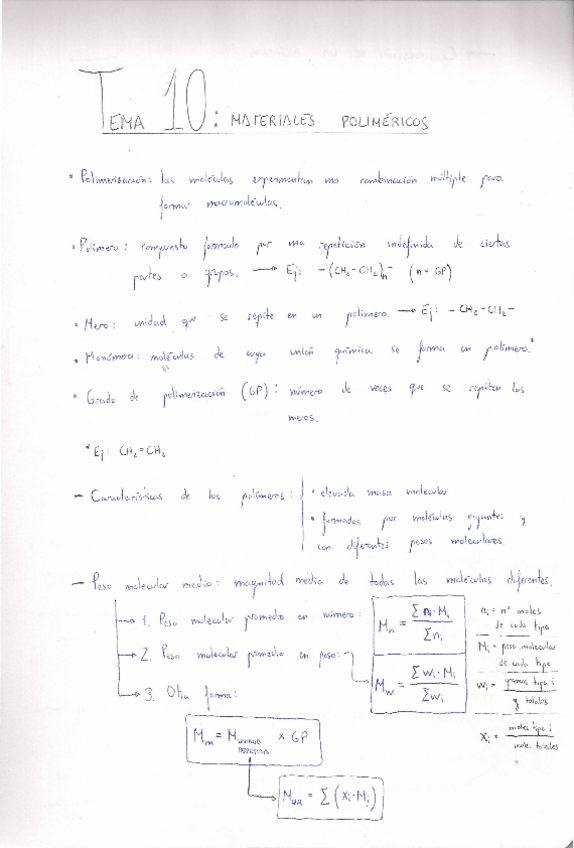 TEMA 10: MATERIALES POLIMÉRICOS
• Polimerización: las moléculas experimentan una combinación múltiple para
formar macromoléculas.
• Polímero: compuesto formado por una repetición indefinida de ciertas
partes o grupos. → Ej: -(CH2-CH2)n- (n = GP)
• Mero: unidad que se repite en un polímero. → Ej: -CH2-CH2-
• Monómero: moléculas de cuya unión química se forma un polímero.*
• Grado de polimerización (GP): número de veces que se repiten los
meros.
* Ej: CH2=CH2
- Características de los polímeros: • elevada masa molecular
• formados por moléculas gigantes y
con diferentes pesos moleculares.
- Peso molecular medio: magnitud media de todas las moléculas diferentes.
→ 1. Peso molecular promedio en número: Mn = Σ ni·Mi / Σni
→ 2. Peso molecular promedio en peso: → Mw = Σ wi·Mi / Σwi
→ 3. Otra forma:
ni = nº moles
de cada tipo
Mi = peso molecular
de cada tipo
wi = gramos tipo i / g totales
xi = moles tipo i / moles totales
Mm = M x GP
= Σ (xi·Mi)